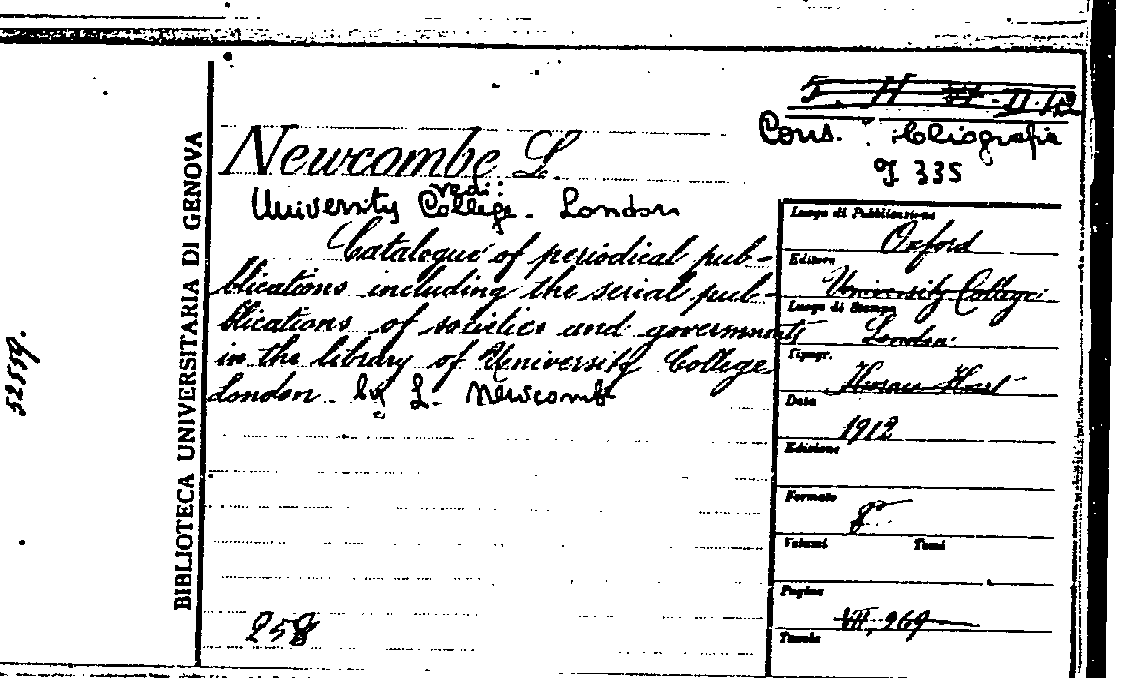 BIBLIOTECA UNIVERSITARIA DI GENOVA
52559.
Newcombe L.
vedi:
University College. London
Catalogue of periodical pub-
blications including the serial pub-
blications of societies and governments
in the library of University College
London. by L. Newcomb
258
Cons. bliografia
J 335
Luogo di Pubblicazione
Oxford
Editore
University College
Luogo di Stampa
London.
Tipogr.
Horace Hart
Data
1912
Edizione
Formato
8°
Volumi Tomi
Pagine
VII, 969
Tavole